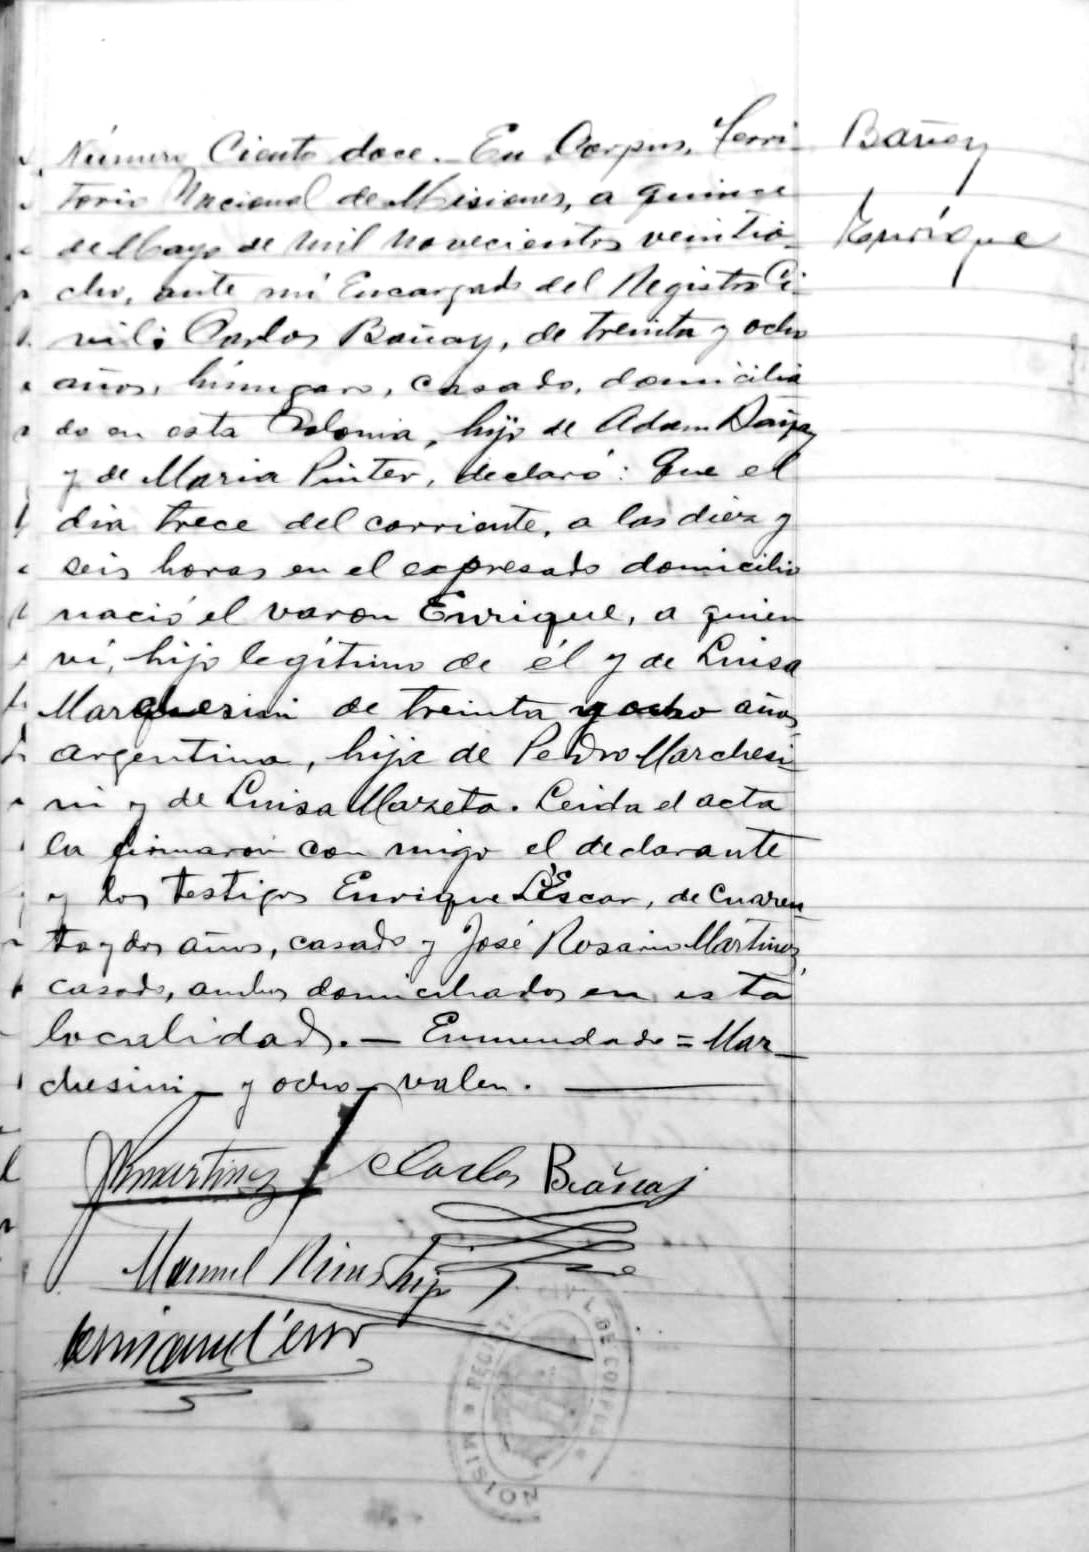 Número Ciento doce.- En Corpus, Terri-
torio Nacional de Misiones, a quince
de Mayo de mil novecientos veintio-
cho, ante mi Encargado del Registro Ci-
vil: Carlos Bañay, de treinta y ocho
años, húngaro, casado, domicilia
do en esta Colonia, hijo de Adam Bañay
y de Maria Pinter, declaró: Que el
dia trece del corriente, a las diez y
seis horas en el expresado domicilio
nació el varon Enrique, a quien
ví, hijo legítimo de él y de Luisa
Marchesini de treinta y ocho años
argentina, hija de Pedro Marchesi-
ni y de Luisa Mazeto. Leida el acta
la firmaron con migo el declarante
y los testigos Enrique L'Escar, de Cuaren
ta y dos años, casado y José Rosario Martinez,
casado, ambos domiciliados en esta
localidad.- Enmendado = Mar-
chesini - y ocho - valen.
Bañay
Enrique
JRMartinez Carlos Bañay
Manuel hijo
REGISTRO CIVIL DE CORPUS
MISION